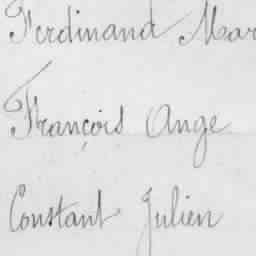 Ferdinand Mar
François Ange
Constant Julien